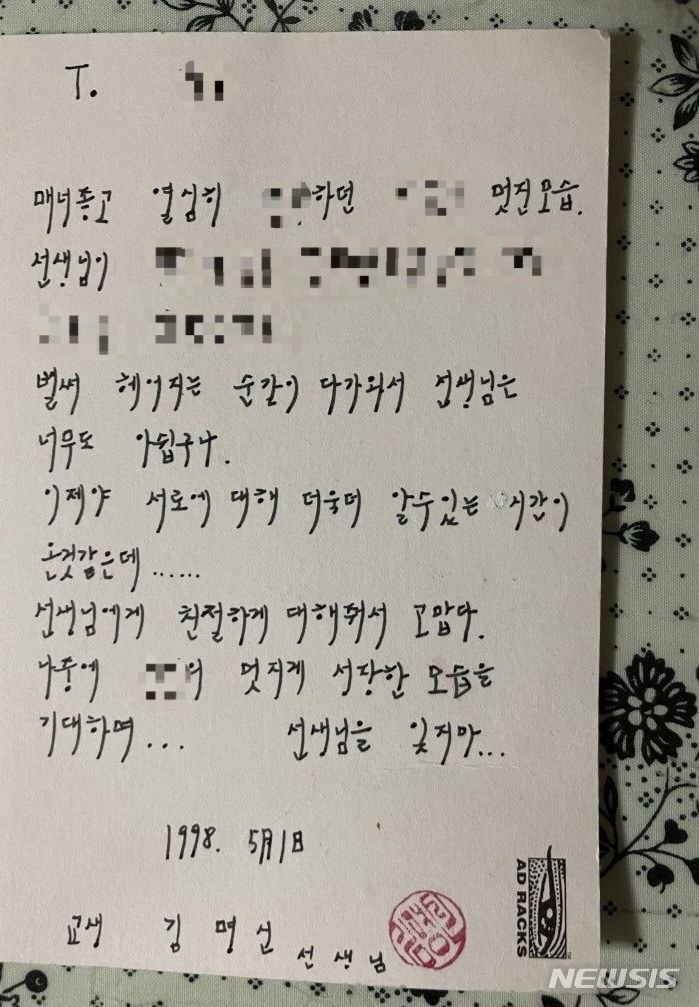 T.
매너좋고 열심히 하던 멋진모습.
선생님이
벌써 헤어지는 순간이 다가와서 선생님은
너무도 아쉽구나.
이제야 서로에 대해 더욱더 알수있는 시간이
온것같은데......
선생님에게 친절하게 대해줘서 고맙다.
나중에 의 멋지게 성장한 모습을
기대하며... 선생님을 잊지마...
1998. 5月1日
교생 김명신 선생님
AD RACKS
NEWSIS